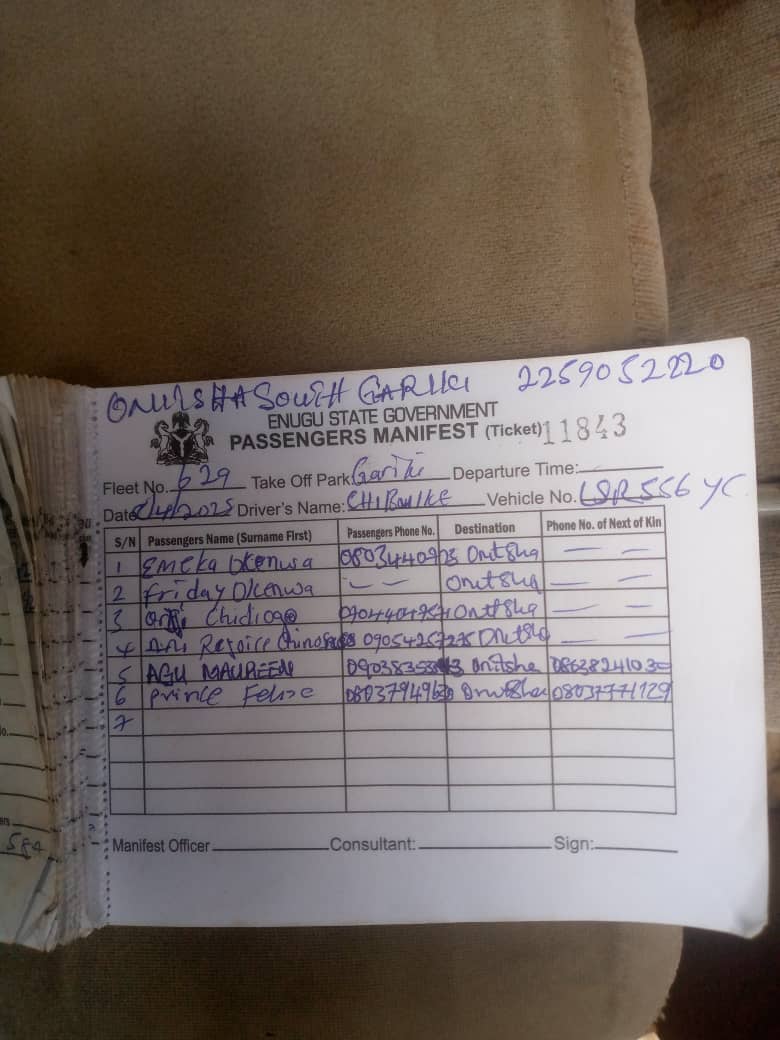 ONITSHA SOUTH GARIKI 2259052220
ENUGU STATE GOVERNMENT
PASSENGERS MANIFEST (Ticket) 11843
Fleet No. 629 Take Off Park: Gariki Departure Time:
Date 2025 Driver's Name: CHIBUIKE Vehicle No. 556 YC
S/N Passengers Name (Surname First) Passengers Phone No. Destination Phone No. of Next of Kin
1 EMEKA Okenwa Onitsha — —
2 Friday Okenwa — — Onitsha — —
3 Chidiogo Onitsha — —
4 Rejoice 09054257275 Onitsha — —
5 AGU MAUREEN Onitsha
6 Prince Onitsha 08037771129
7
Manifest Officer Consultant: Sign:
584